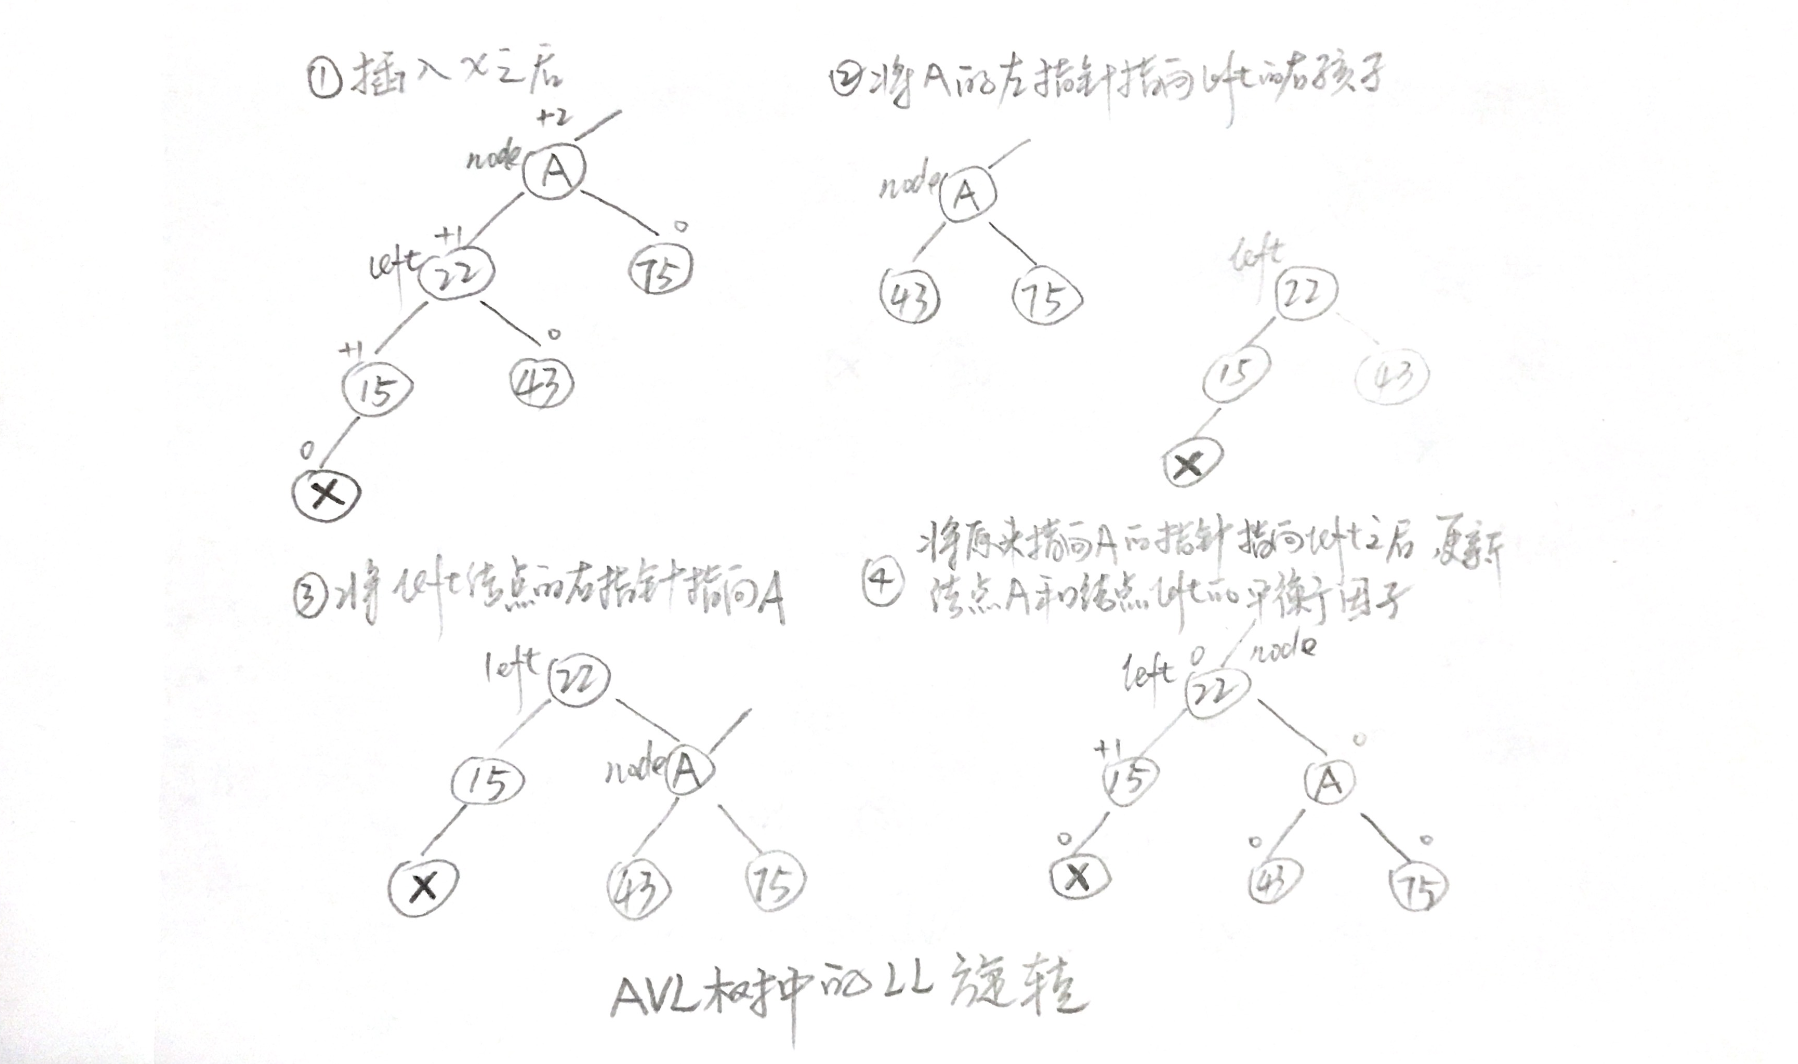 ①插入x之后
+2
node
A
+1
left
22
0
75
+1
15
0
43
0
X
②将A的左指针指向left的右孩子
node
A
43
75
left
22
15
43
X
③将left结点的右指针指向A
left
22
15
node
A
X
43
75
④将原来指向A的指针指向left之后 更新
结点A和结点left的平衡因子
left
0
node
22
+1
15
0
A
0
X
0
43
0
75
AVL树中的LL旋转